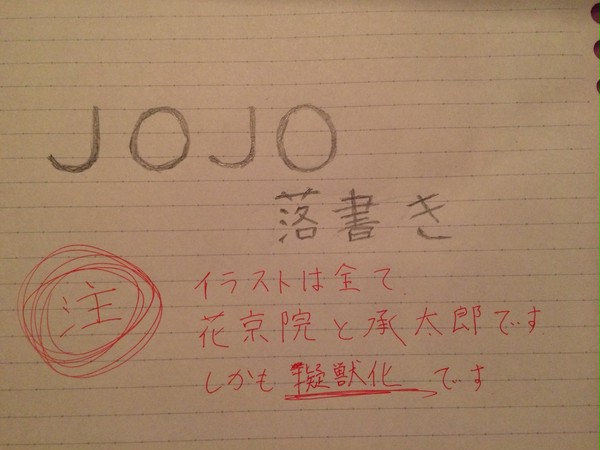 JOJO
落書き
注
イラストは全て
花京院と承太郎です
しかも擬獣化です